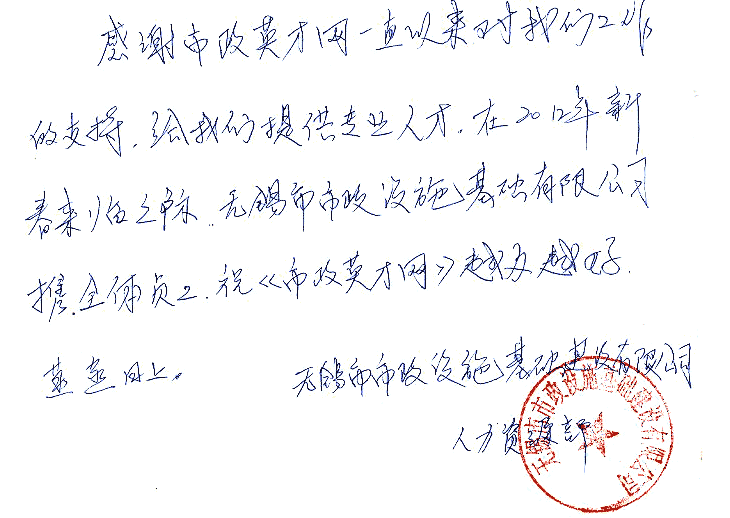 感谢市政英才网一直以来对我们工作
的支持，给我们提供专业人才，在2012年新
春来临之际，无锡市市政设施基础有限公司
携全体员工，祝《市政英才网》越办越好
蒸蒸日上。
无锡市市政设施基础建设有限公司
人力资源部
无锡市市政设施基础建设有限公司